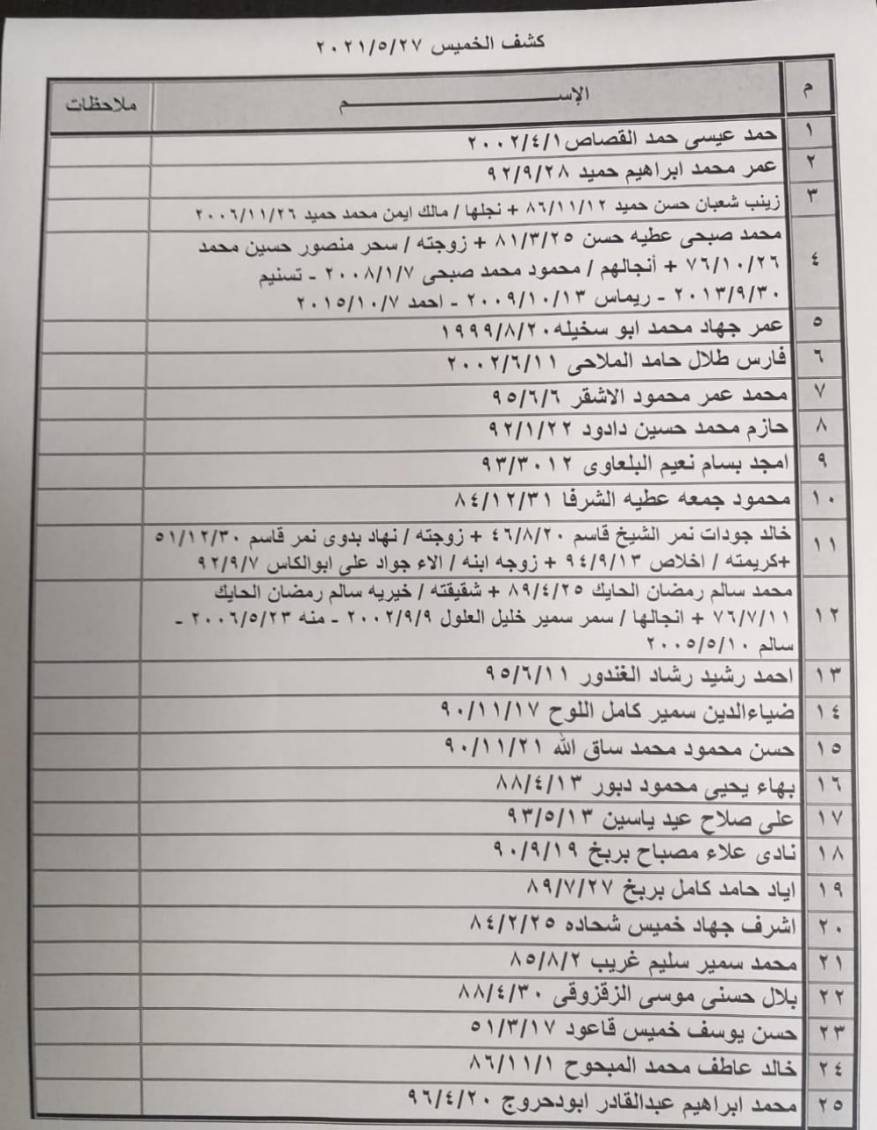 كشف الخميس ٢٠٢١/٥/٢٧
م الإســـم ملاحظات
١ حمد عيسى حمد القصاص ٢٠٠٢/٤/١
٢ عمر محمد ابراهيم حميد ٩٢/٩/٢٨
٣ زينب شعبان حسن حميد ٨٦/١١/١٢ + نجلها / مالك ايمن محمد حميد ٢٠٠٦/١١/٢٦
٤ محمد صبحى عطيه حسن ٨١/٣/٢٥ + زوجته / سحر منصور حسين محمد
٧٦/١٠/٢٦ + أنجالهم / محمود محمد صبحى ٢٠٠٨/١/٧ - تسنيم
٢٠١٣/٩/٣٠ - ريماس ٢٠٠٩/١٠/١٣ - احمد ٢٠١٥/١٠/٧
٥ عمر جهاد محمد ابو سخيله ١٩٩٩/٨/٢٠
٦ فارس طلال حامد الملاحى ٢٠٠٢/٦/١١
٧ محمد عمر محمود الاشقر ٩٥/٦/٦
٨ حازم محمد حسين دادود ٩٢/١/٢٢
٩ امجد بسام نعيم البلعاوى ٩٣/٣٠١٢
١٠ محمود جمعه عطيه الشرفا ٨٤/١٢/٣١
١١ خالد جودات نمر الشيخ قاسم ٤٦/٨/٢٠ + زوجته / نهاد بدوى نمر قاسم ٥١/١٢/٣٠
+كريمته / اخلاص ٩٤/٩/١٣ + زوجه ابنه / الاء جواد على ابوالكاس ٩٢/٩/٧
١٢ محمد سالم رمضان الحايك ٨٩/٤/٢٥ + شقيقته / خيريه سالم رمضان الحايك
٧٦/٧/١١ + انجالها / سمر سمير خليل العلول ٢٠٠٢/٩/٩ - منه ٢٠٠٦/٥/٢٣ -
سالم ٢٠٠٥/٥/١٠
١٣ احمد رشيد رشاد الغندور ٩٥/٦/١١
١٤ ضياءالدين سمير كامل اللوح ٩٠/١١/١٧
١٥ حسن محمود محمد ساق الله ٩٠/١١/٢١
١٦ بهاء يحيى محمود دبور ٨٨/٤/١٣
١٧ على صلاح عيد ياسين ٩٣/٥/١٣
١٨ نادى علاء مصباح بربخ ٩٠/٩/١٩
١٩ اياد حامد كامل بربخ ٨٩/٧/٢٧
٢٠ اشرف جهاد خميس شحاده ٨٤/٢/٢٥
٢١ محمد سمير سليم غريب ٨٥/٨/٢
٢٢ بلال حسنى موسى الزقزوقى ٨٨/٤/٣٠
٢٣ حسن يوسف خميس قاعود ٥١/٣/١٧
٢٤ خالد عاطف محمد المبحوح ٨٦/١١/١
٢٥ محمد ابراهيم عبدالقادر ابودحروج ٩٦/٤/٢٠